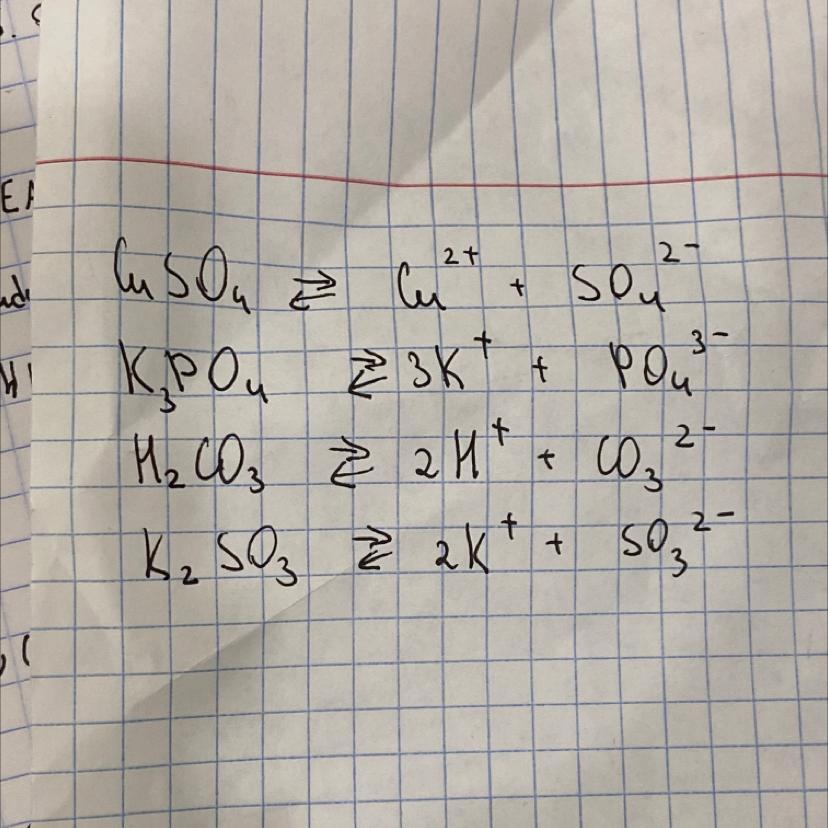 CuSO₄ ⇄ Cu²⁺ + SO₄²⁻
K₃PO₄ ⇄ 3K⁺ + PO₄³⁻
H₂CO₃ ⇄ 2H⁺ + CO₃²⁻
K₂SO₃ ⇄ 2K⁺ + SO₃²⁻